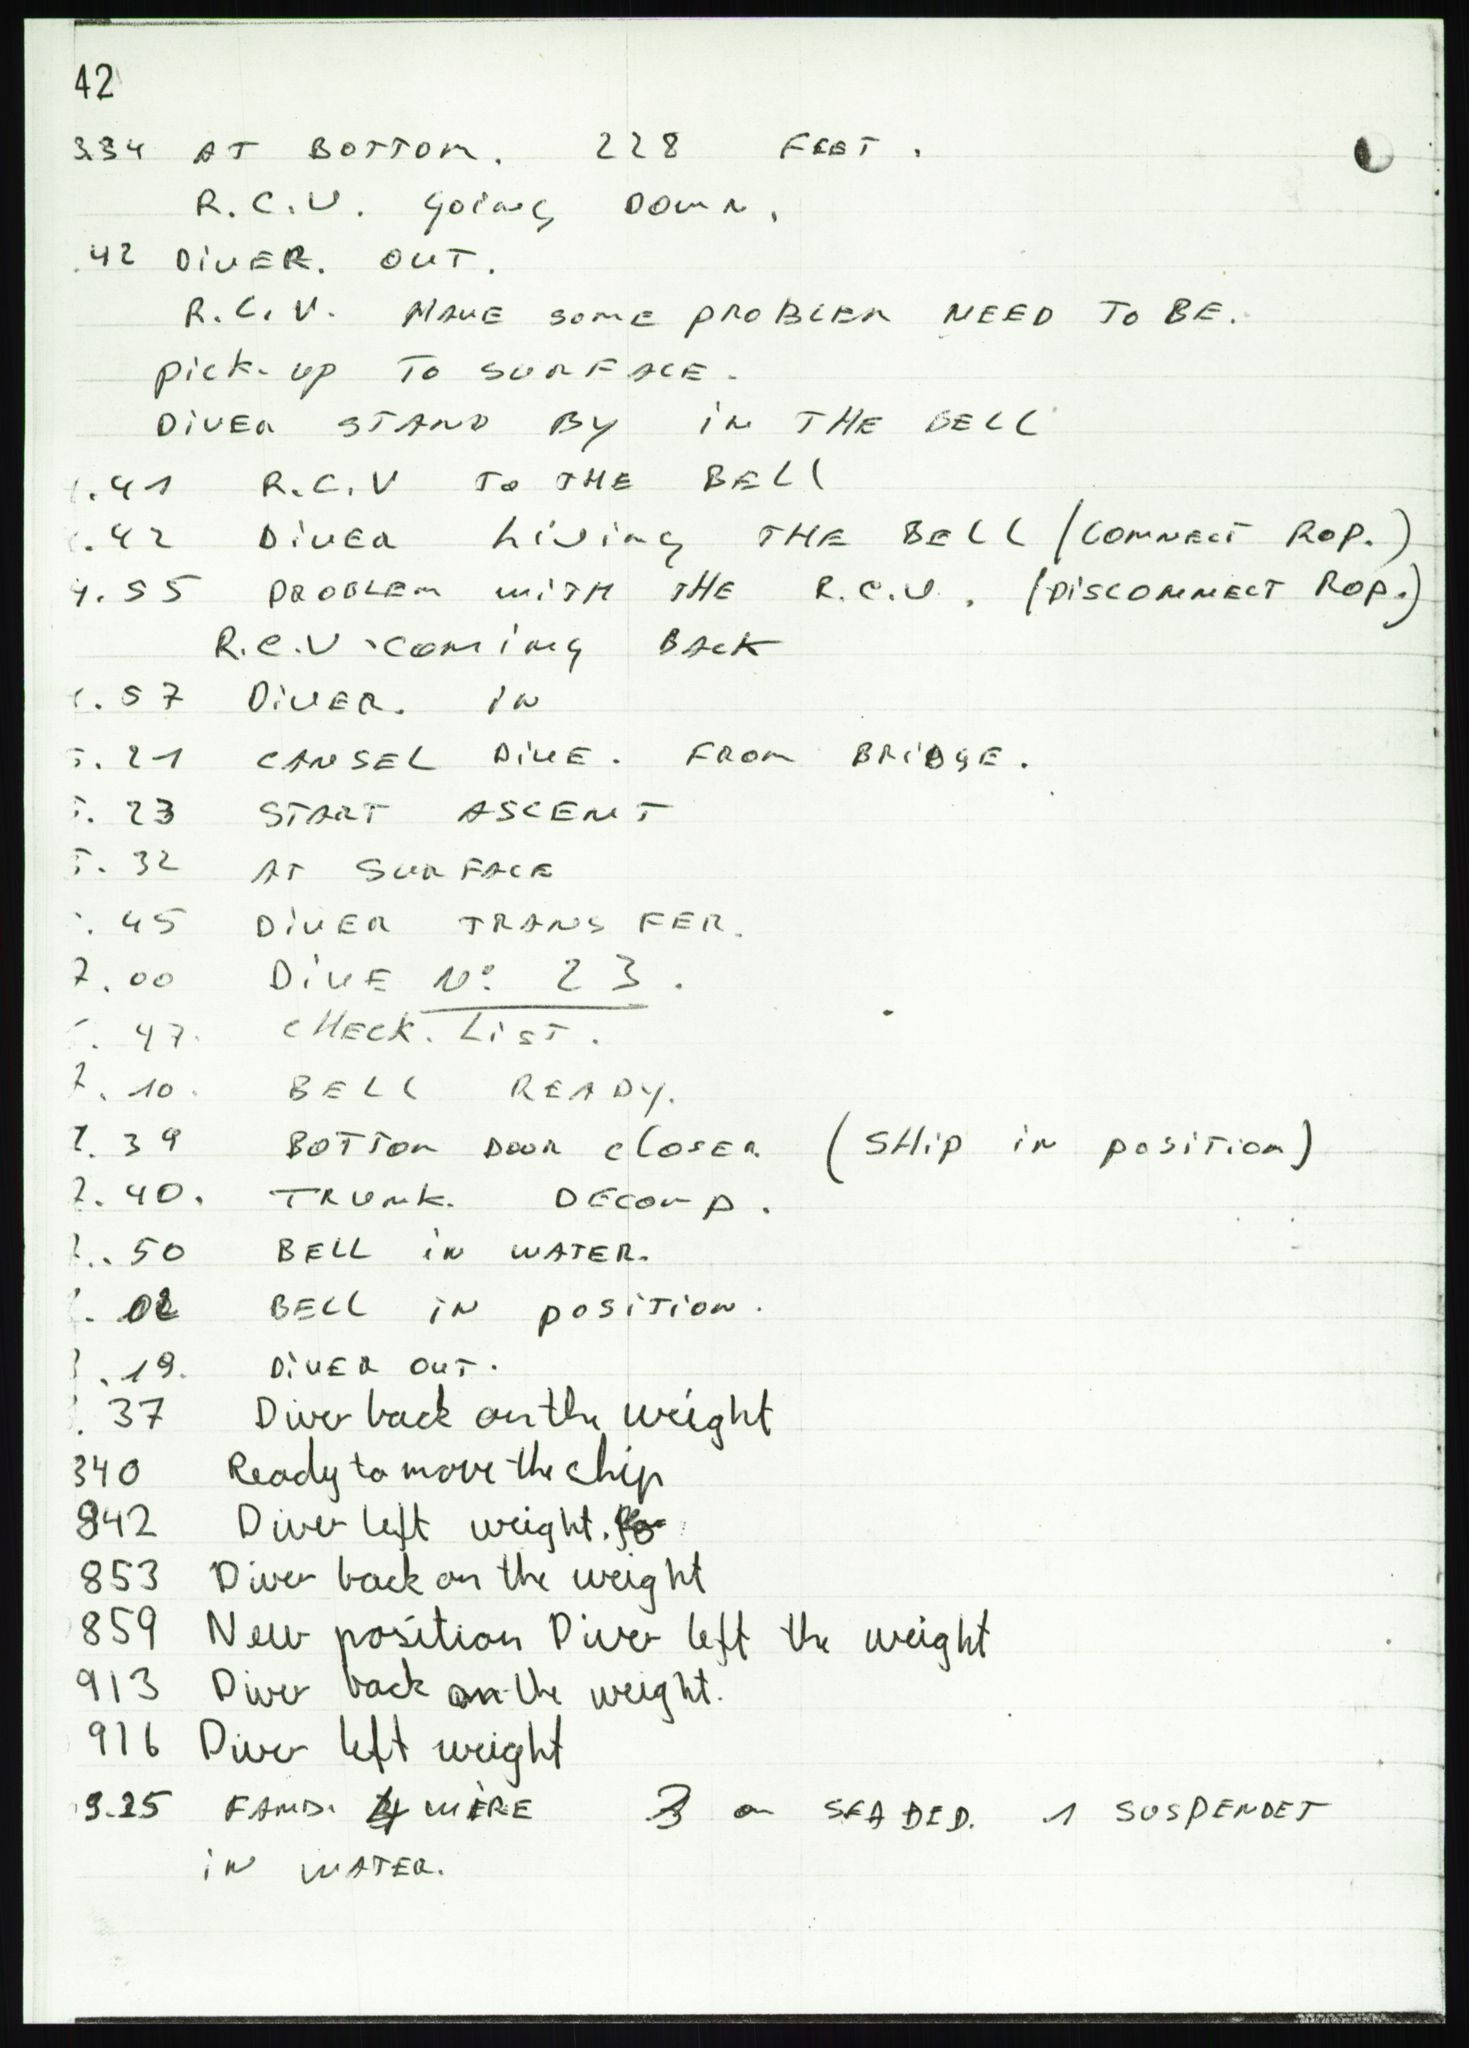 42
3.34 AT BOTTOM. 228 FEET.
R.C.V. going DOWN.
.42 DIVER. OUT.
R.C.V. HAVE some problem NEED TO BE.
pick-up TO SURFACE.
DIVER STAND By in THE BELL
.41 R.C.V To THE BELL
.42 DIVER Living THE BELL (CONNECT ROP.)
4.55 PROBLEM WITH THE R.C.V. (DISCONNECT ROP.)
R.C.V. coming BACK
.57 DIVER. IN
5.21 CANSEL DIVE. FROM BRIDGE.
5.23 START ASCENT
5.32 AT SURFACE
.45 DIVER TRANSFER.
7.00 DIVE No 23.
.47. CHECK. LIST.
7.10. BELL READY.
7.39 BOTTOM DOOR CLOSER (SHIP in position)
7.40. TRUNK. DECOMP.
7.50 BELL in WATER.
.02 BELL IN position.
.19. DIVER OUT.
.37 Diver back on the weight
840 Ready to move the chip
842 Diver left weight.
853 Diver back on the weight
859 New position Diver left the weight
913 Diver back on the weight.
916 Diver left weight
9.25 FAND. 4 WIERE 3 on SEABED. 1 SUSPENDET
in WATER.